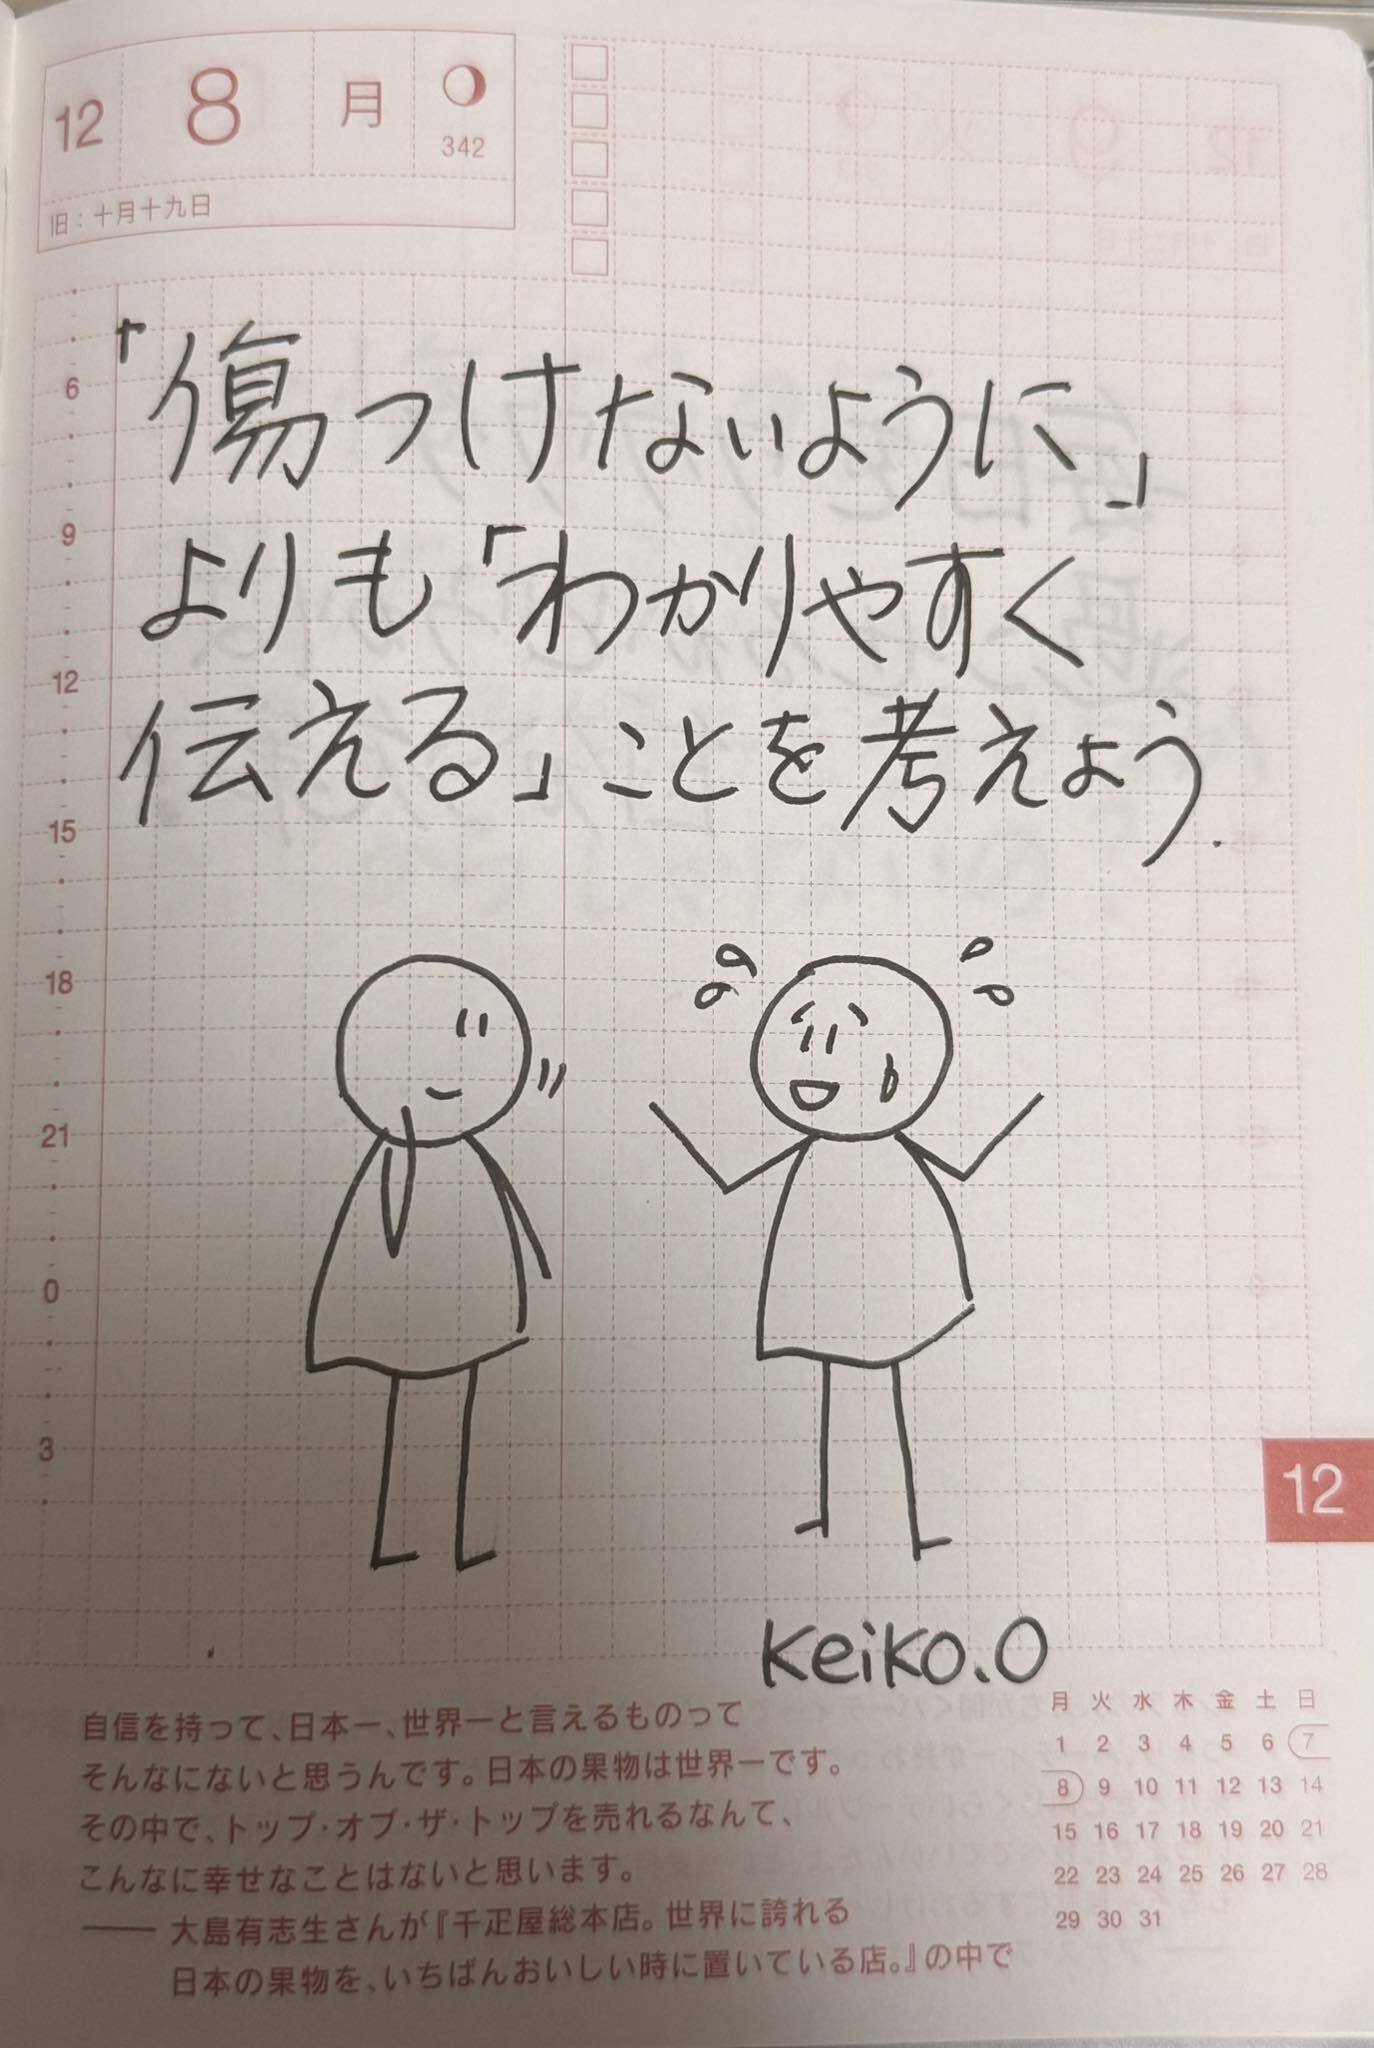 12 8 月
342
旧：十月十九日
「傷つけないように」
よりも「わかりやすく
伝える」ことを考えよう.
6
9
12
15
18
21
0
3
12
Keiko.O
自信を持って、日本一、世界一と言えるものって
そんなにないと思うんです。日本の果物は世界一です。
その中で、トップ・オブ・ザ・トップを売れるなんて、
こんなに幸せなことはないと思います。
―― 大島有志生さんが『千疋屋総本店。世界に誇れる
日本の果物を、いちばんおいしい時に置いている店。』の中で
月 火 水 木 金 土 日
1 2 3 4 5 6 7
8 9 10 11 12 13 14
15 16 17 18 19 20 21
22 23 24 25 26 27 28
29 30 31